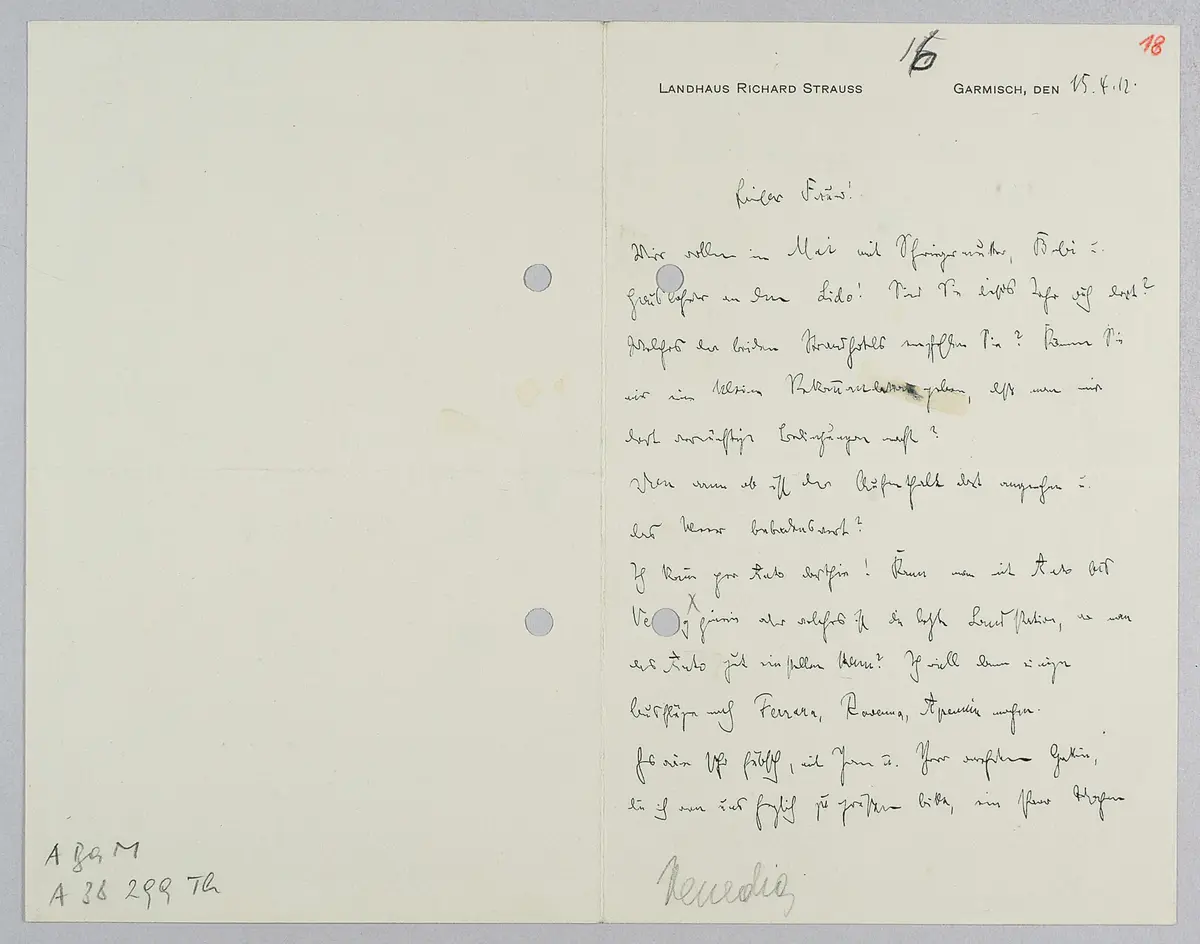 16
18
LANDHAUS RICHARD STRAUSS
GARMISCH, DEN 15. 4. 12.
Lieber Freund!
Wir wollen im Mai mit Schwiegermutter, Bubi u.
Hauslehrer an den Lido! Sind Sie dieses Jahr auch dort?
Welches der beiden Strandhotels empfehlen Sie? Können Sie
mir eine kleine Rekommandation geben, daß man mir
dort vernünftige Bedingungen macht?
Von wann ab ist der Aufenthalt dort angenehm u.
das Meer badenswert?
Ich komme per Auto dorthin! Kann man mit Auto bis
Ve g hinein oder welches ist die letzte Landstation, wo man
das Auto gut einstellen kann? Ich will dann einige
Ausflüge nach Ferrara, Ravenna, Apennin machen.
Es wäre sehr hübsch, mit Ihnen u. Ihrer verehrten Gattin,
die ich von uns herzlich zu grüßen bitte, ein paar Wochen
Venedig
A 38 299 Th